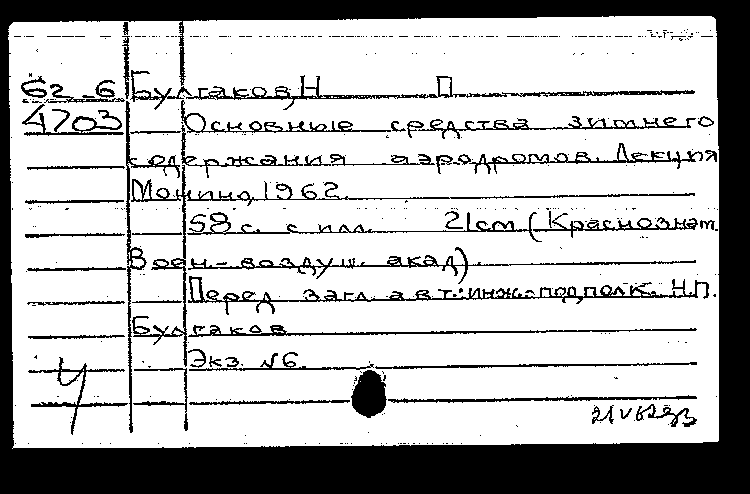 62-6 Булгаков, Н П
4703 Основные средства зимнего
содержания аэродромов. Лекция
Монино, 1962.
58 с. с илл. 21cm (Краснознам.
Воен.-воздуш. акад).
Перед загл. авт.: инж.-подполк. Н.П.
Булгаков
Экз. №6.
Ч